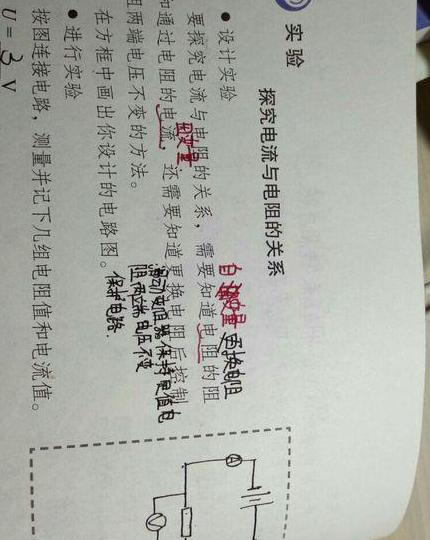 实验
探究电流与电阻的关系
● 设计实验
要探究电流与电阻的关系，需要知道电阻的阻
自变量 更换电阻
知通过电阻的电流，还需要知道更换电阻后控制
因变量
阻两端电压不变的方法。
滑动变阻器 保持定值电
阻两端电压不变
保护电路.
在方框中画出你设计的电路图。
● 进行实验
按图连接电路，测量并记下几组电阻值和电流值。
U = 3 V
A
V